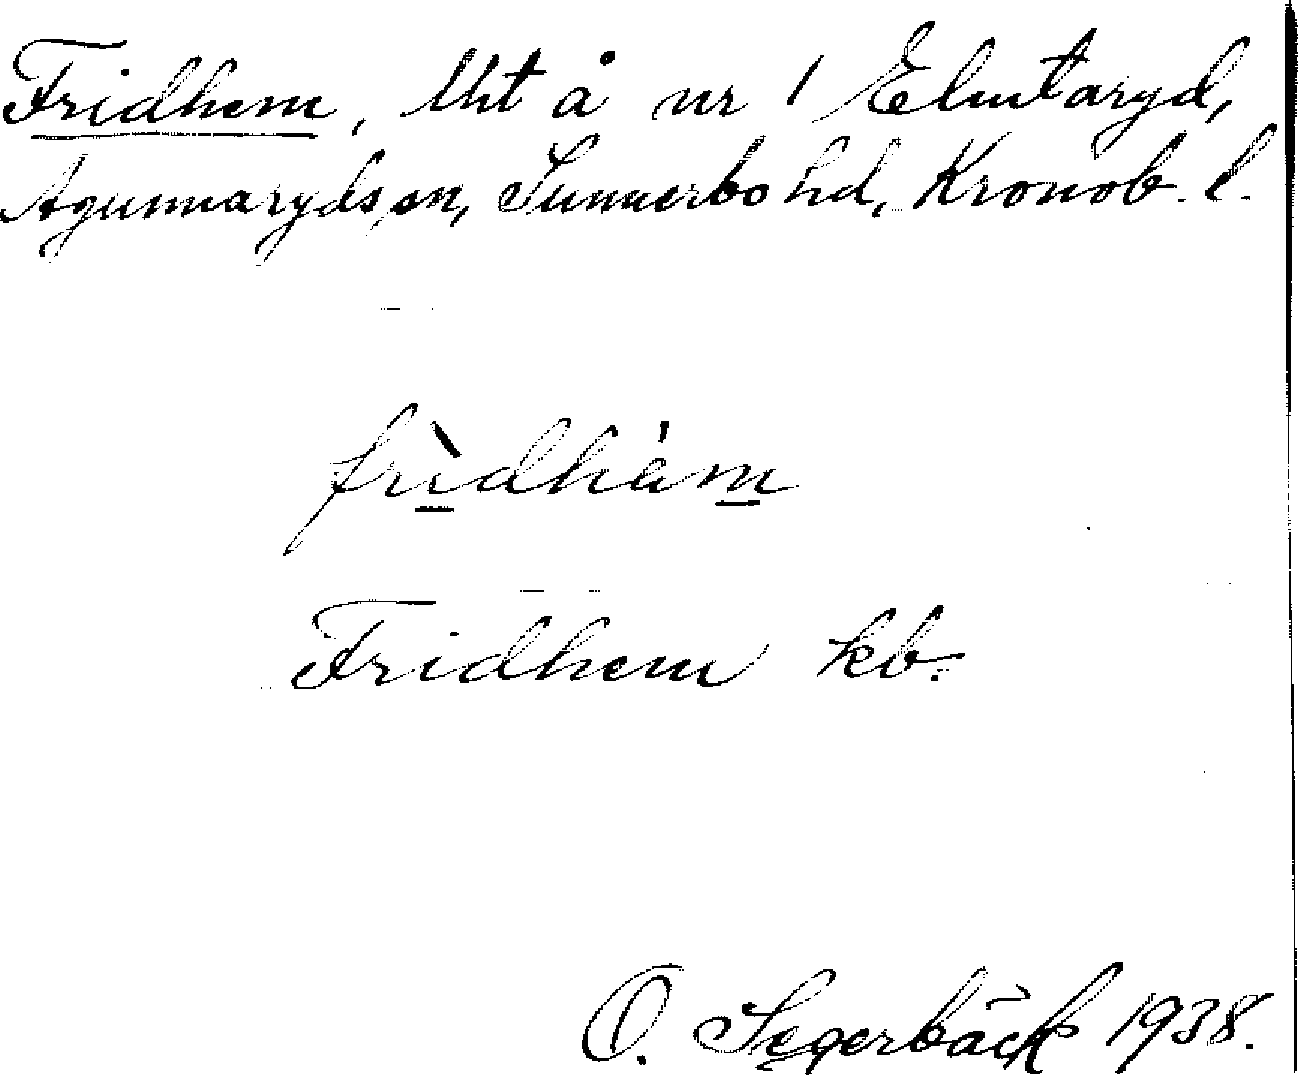 Fridhem, lht å nr 1 Elmtaryd,
Agunnaryds sn, Sunnerbo hd, Kronob. l.
frìdhäm
Fridhem kb.
O. Segerbäck 1938.